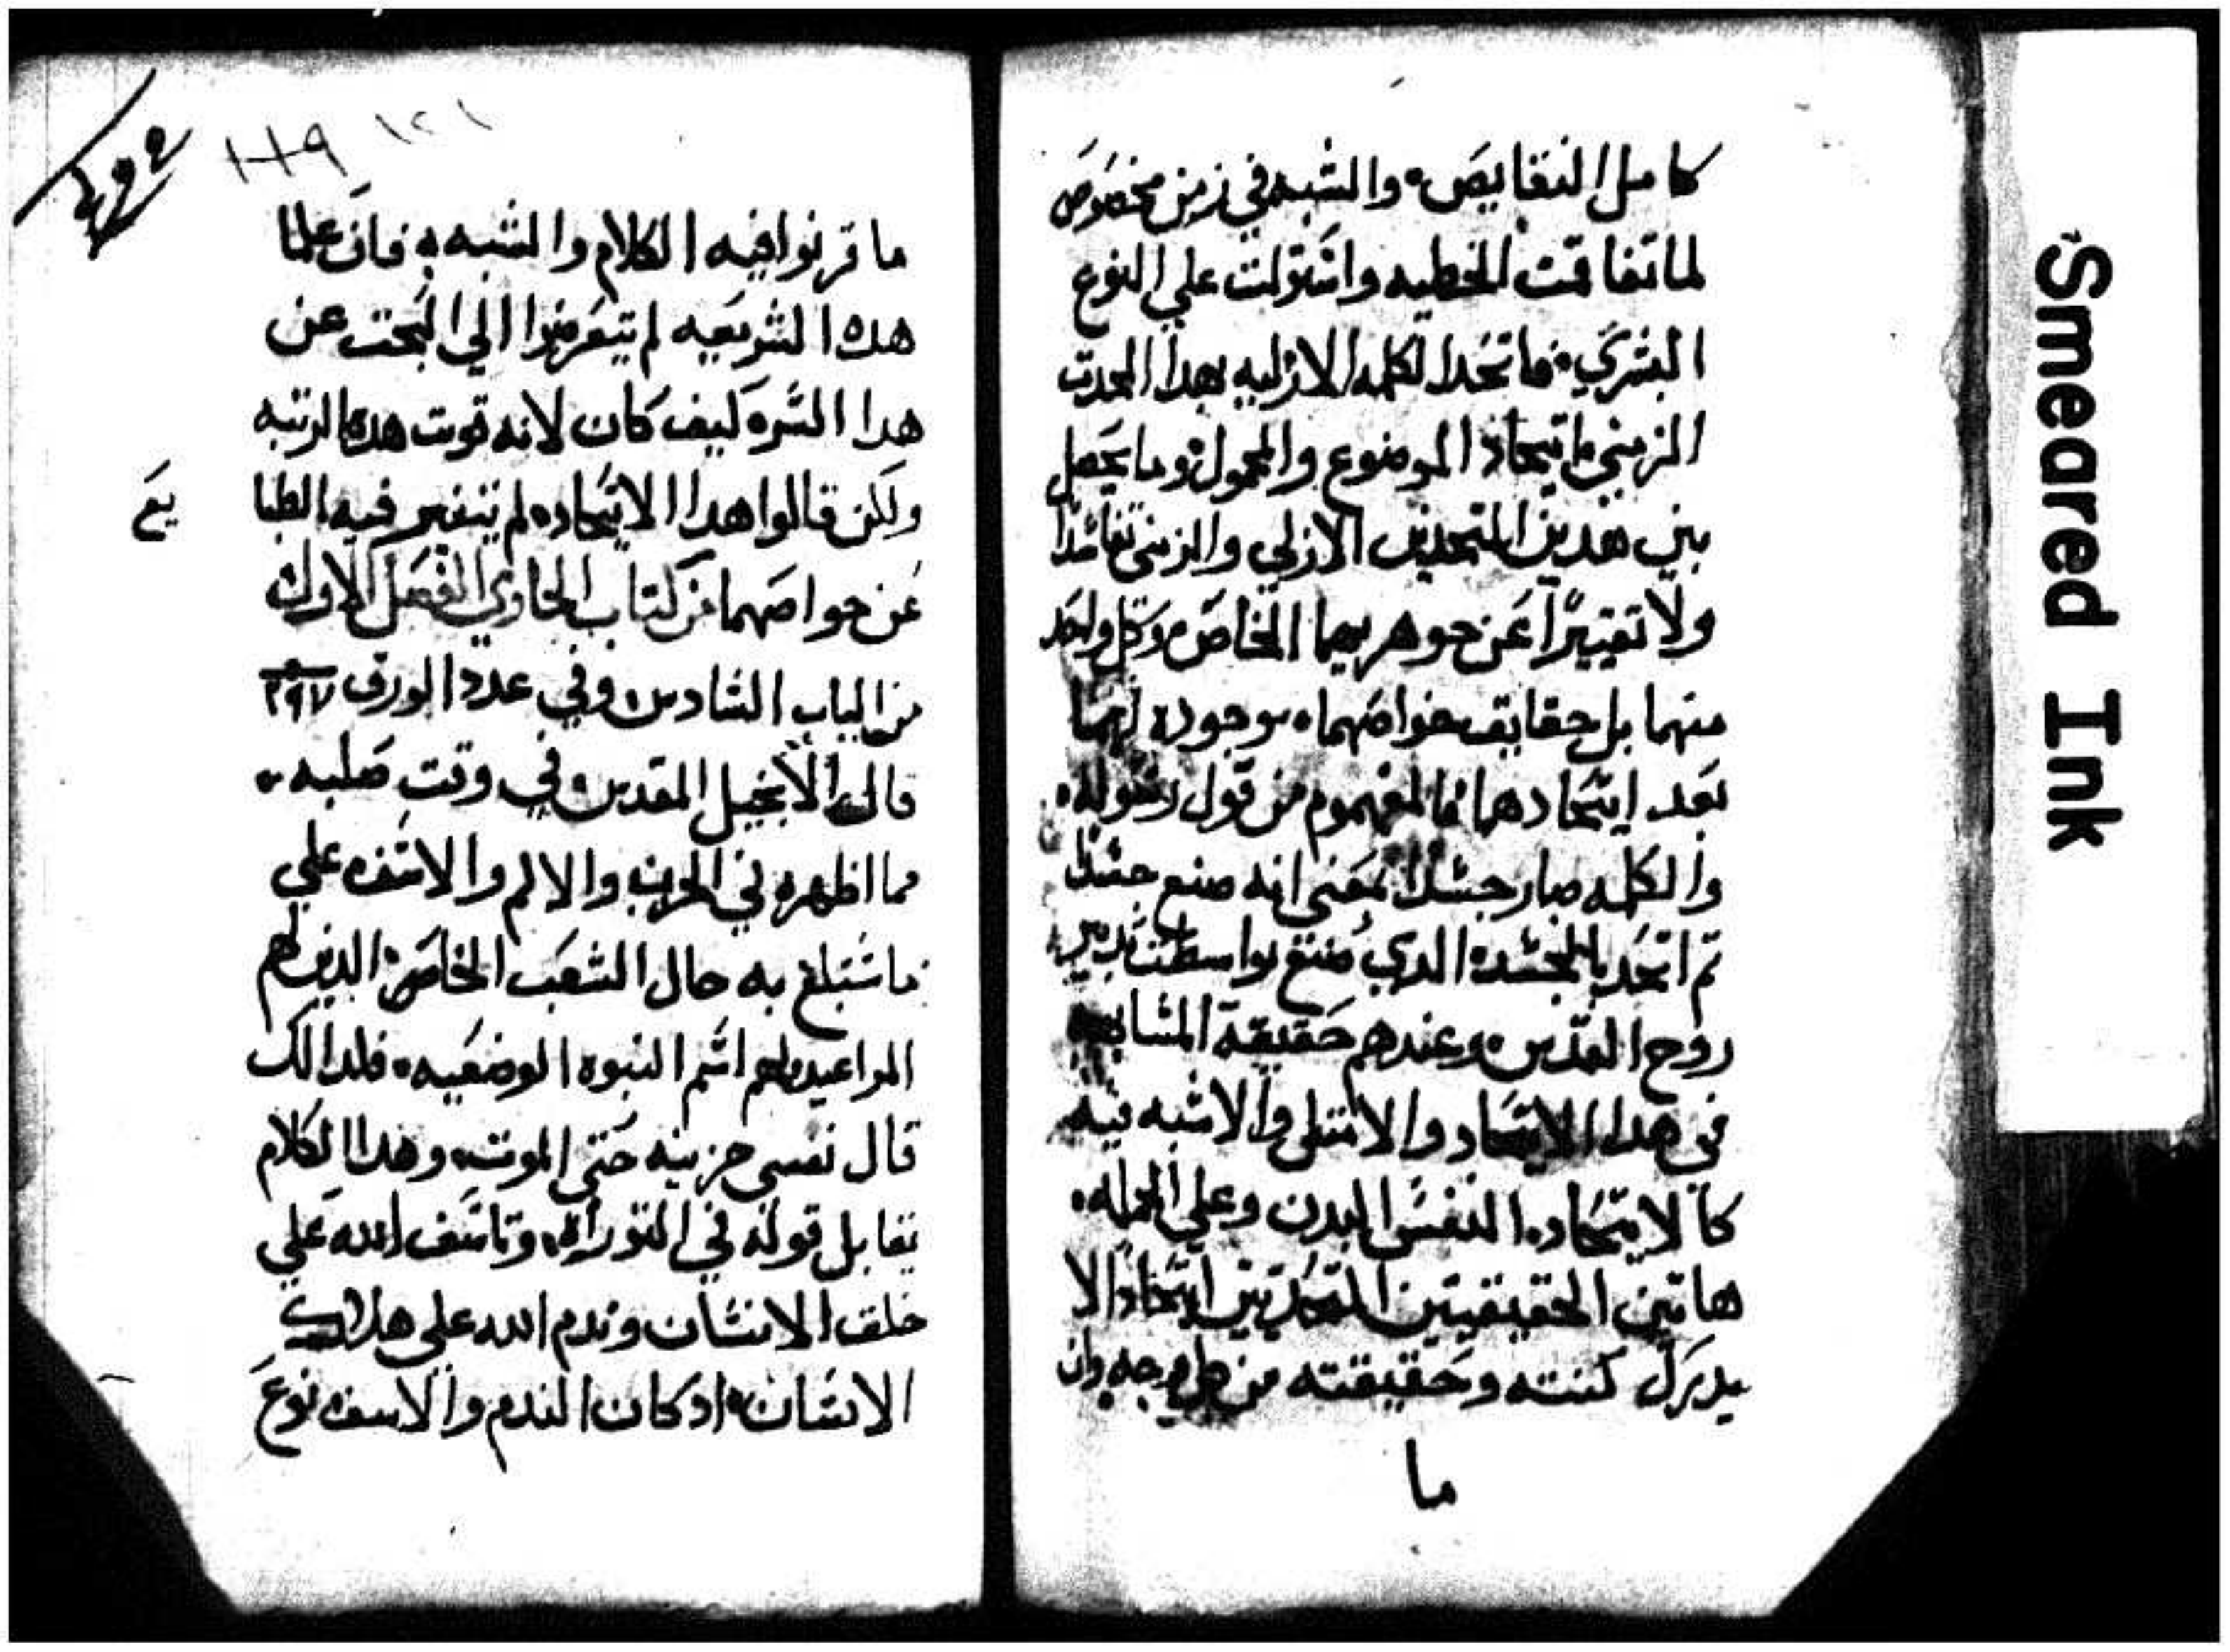 كامل النقايص، والشبه في زمن مخصوص
لما تفاقمت الخطيه واستولت علي النوع
البشري، فاتحدا لكلمه الازليه بهدا المحدت
الزمني اتحاد الموضوع والمحمول، وما يحصل
بين هدين المتحدين الازلي والزمني تفاسدا
ولا تغييرًا عن جوهريهما الخاص، وكل واحد
منهما بل حقايق خواصهما، موجوده لهما
بعد إيتحادهما فالمفهوم من قول رسوله،
والكلمه صار جسدًا بمعني انه صنع جسدًا
تم اتحد بالجسد، الدي صنع بواسطت تدبير
روح القدس، وعندهم حقيقة المشابهه
في هدا الايتحاد والامتلي والاشبه فيه
كالايتحاده النفس البدن وعلي الجمله،
هاتين الحقيقيتين المتحدتين ايتحادًا لا
يدرك كنته وحقيقته من كل وجه وان
ما
١٢١
١١٩
ما قرنوا فيه الكلام والشبه به فان علما
هده الشريعيه لم يتعرضوا الي البحت عن
هدا السر، كيف كان لانه فوت هده الرتبه
ولكن قالوا هدا الايتحاده لم يتغير فيه الطبا
يع
عن خواصهما من كتاب الحاوي الفصل الاول
من الباب السادس وفي عدد الورق ٢٩٧
قال الانجيل المقدس في وقت صلبه
مما اظهره في الحزن والالم والاسف علي
ما ستبلغ به حال الشعب الخاص، الدين لهم
المواعيد ولهم اسم النبوه الوضعيه، فلدالك
قال نفسي حزينه حتي الموت، وهدا الكلام
يقابل قوله في التوراه، وتاسف الله علي
خلقت الانسان وندم الله علي
الانسان، اد كان الندم والاسف نوع
Smeared Ink